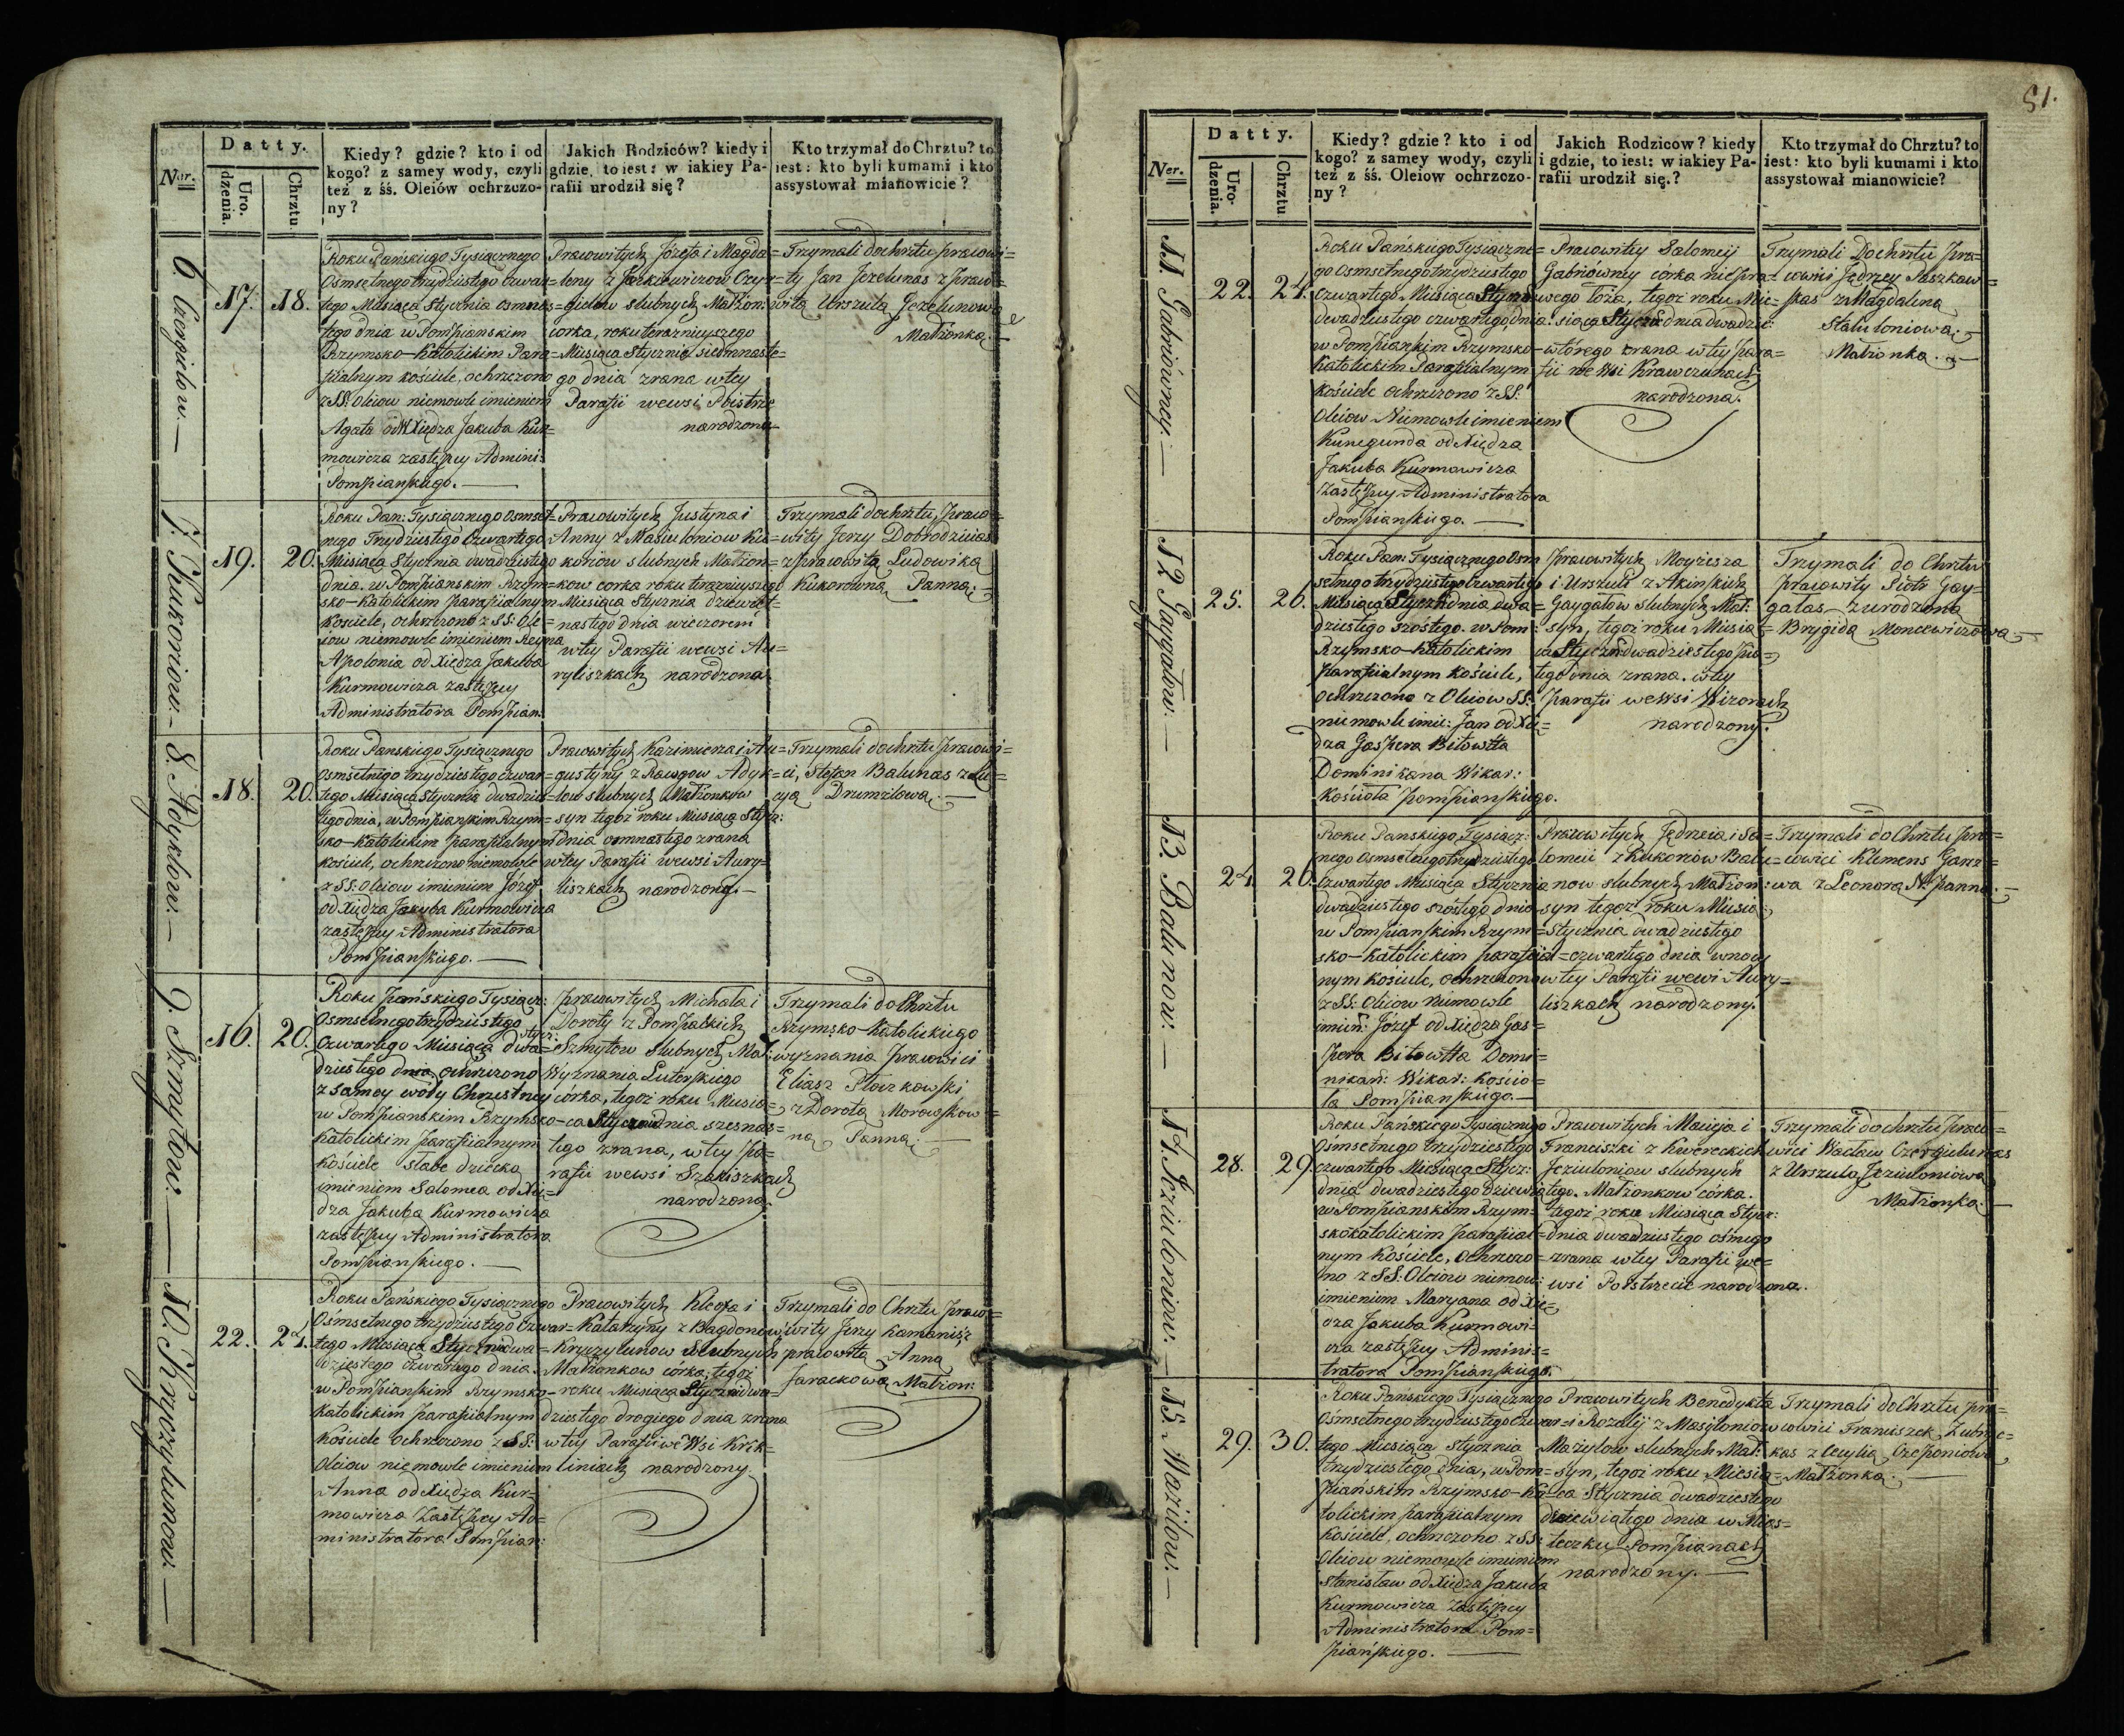 Ner.
Datty.
Uro-
dzenia.
Chrztu
Kiedy? gdzie? kto i od
kogo? z samey wody, czyli
też z śś. Oleiów ochrzczo-
ny?
Jakich Rodziców? kiedy i
gdzie, to iest: w iakiey Pa-
rafii urodził się?
Kto trzymał do Chrztu? to
iest: kto byli kumami i kto
assystował mianowicie?
17.
18.
Roku Pańskiego Tysiącznego
Osmsetnego trzydziestego czwar=
tego Miesiąca Stycznia osmnas=
tego dnia w Pompianskim
Rzymsko-Katolickim Para=
fialnym kościele, ochrzczono
z SS: Oleiow niemowle imieniem
Agata od Xiędza Jakuba Kur=
mowicza zastępcy Admini:
Pompianskiego.
Pracowitych Józefa i Magda=
leny z
slubnych Małżon:
corka, roku teraznieyszego
Miesiąca Stycznia siedmnaste=
go dnia zrana w tey
Parafii we wsi Poistrze
narodzona
Trzymali do chrztu pracowi=
ty Jan Jezelunas z praco=
witą Urszulą Jezelunową
Małżonką.
7. Kukoriow.
19.
20.
Roku Pan: Tysiącznego Osmset=
nego Trzydziestego Czwartego
Miesiąca Stycznia dwudziestego
dnia. w Pompianskim Rzym=
sko-Katolickim parafialnym
kościele, ochrzczono z SS: Ole=
iow niemowle imieniem Regina
Apolonia od Xiędza Jakuba
Kurmowicza zastępcy
Administratora Pompian:
Pracowitych Justyna i
Anny z Masiuloniow Ku=
koriow slubnych Małżon=
kow corka roku teraznieyszego
Miesiąca Stycznia dziewięt=
nastego dnia wieczorem
w tey Parafii we wsi Au=
ryliszkach narodzona
Trzymali do chrztu, praco=
wity Jerzy Dobrodzieias
z pracowitą Ludowiką
Kukorowną Panną.
8. Adyklow.
18.
20.
Roku Panskiego Tysiącznego
Osmsetnego trzydziestego czwar=
tego Miesiąca Stycznia dwudzies=
tego dnia, w Pompianskim Rzym=
sko-Katolickim parafialnym
kościele, ochrzczono niemowle
z SS: Oleiow imieniem Józef
od Xiędza Jakuba Kurmowicza
zastępcy Administratora
Pompianskiego.
Pracowitych Kazimierza i Au=
gustyny z Rawgow Adyk=
low slubnych Małżonkow
syn tegoż roku Miesiąca Stycz:
dnia osmnastego zrana
w tey Parafii we wsi Aury=
liszkach narodzony.
Trzymali do chrztu pracowi=
ci, Stefan Balunas z Łu=
cyą Drumzlową.
9. Szmytow.
16.
20.
Roku Pańskiego Tysiącz:
Osmsetnego trzydziestego
Czwartego Miesiąca stycz: dwa=
dziestego dnia ochrzczono
z samey wody Chrzestney
w Pompianskim Rzymsko-
Katolickim parafialnym
kościele słabe dziecko
imieniem Salomea od Xię=
dza Jakuba Kurmowicza
zastępcy Administratora
Pompianskiego.
pracowitych Michała i
Doroty z Pompalskich
Szmytow slubnych Mał:
Wyznania Luterskiego
córka, tegoż roku Miesią=
ca Stycznia dnia szesnas=
tego zrana, w tey Pa=
rafii we wsi Szakiszkach
narodzona.
Trzymali do Chrztu
Rzymsko-Katolickiego
wyznania pracowici
Eliasz Płaczkowski
z Dorotą Morawskow=
ną Panną.
10. Krzyzylunow.
22.
24.
Roku Pańskiego Tysiącznego
Ośmsetnego trzydziestego Czwar=
tego Miesiąca Stycznia dwa=
dziestego czwartego dnia.
w Pompianskim Rzymsko-
Katolickim parafialnym
kościele ochrzczono z SS:
Oleiow niemowle imieniem
Anna od Xiędza Kur=
mowicza Zastępcy Ad=
ministratora Pompian:
Pracowitych Kleofa i
Katarzyny z Bagdonow
Krzyzylunow slubnych
Małżonkow córka, tegoż
roku Miesiąca Stycznia dwa=
dziestego drogiego dnia zrana
w tey Parafii we Wsi Krik=
liniach narodzony
Trzymali do Chrztu praco=
wity Jerzy Kamaniś z
pracowitą Anną
Jarackową Małżon:
51.
Ner.
Datty.
Uro-
dzenia.
Chrztu
Kiedy? gdzie? kto i od
kogo? z samey wody, czyli
też z śś. Oleiow ochrzczo-
ny?
Jakich Rodziców? kiedy
i gdzie, to iest: w iakiey Pa-
rafii urodził się.?
Kto trzymał do Chrztu? to
iest: kto byli kumami i kto
assystował mianowicie?
11. Gabriówney.
22.
24.
Roku Pańskiego Tysiączne=
go Osmsetnego trzydziestego
Czwartego Miesiąca Stycznia
dwadziestego czwartego, dnia.
w Pompianskim Rzymsko-
Katolickim Parafialnym
kościele ochrzczono z SS:
Oleiow Niemowle imieniem
Kunegunda od Xiędza
Jakuba Kurmowicza
Zastępcy Administratora
Pompianskiego.
Pracowitey Salomeij
Gabriówney córka niepra=
wego łoża, tegoż roku Mie=
siąca Stycznia dnia dwadzie:
wtórego zrana w tey para=
fii we Wsi Krawczunach
narodzona.
Trzymali Do chrztu pra=
cowici Jędrzey Paszkaw=
skas z Magdaleną
Staluloniową
Małżonką.
12 Gaygałow.
25.
26.
Roku Pan: Tysiącznego Osm
setnego trzydziestego Czwartego
Miesiąca Stycznia dnia dwa=
dziestego szostego. w Pom:
Rzymsko-Katolickim
parafialnym kościele,
ochrzczono z Oleiow SS:
niemowle imie: Jan od Xię=
dza Gaspera Bitowtta
Dominikana Wikar:
kościoła pompianskiego.
pracowitych Moyżesza
i Urszuli z Akinskich
Gaygałow slubnych Mał:
syn, tegoż roku Miesią=
ca Stycznia dwadziestego pią=
tego dnia zrana. w tey
parafii we Wsi Wizorach
narodzony.
Trzymali do Chrztu
pracowity Piotr Gay=
gałas z urodzoną
Brygidą Moncewiczową
13. Balunow.
24.
26.
Roku Panskiego, Tysiącz:
nego Osmsetnego trzydziestego
Czwartego Miesiąca Stycznia
dwadziestego szóstego dnia
w Pompianskim Rzym=
sko-Katolickim parafial=
nym kościele, ochrzczono
z SS: Oleiow niemowle
imien: Józef od Xiędza Gas=
pera Bitowtta Domi=
nikan: Wikar: kościo=
ła Pompianskiego.
Pracowitych Jędrzeia i Sa=
lomeii z Kukoriow Balu=
now slubnych Małżon:
syn tegoż roku Miesią:
Stycznia dwadziestego
czwartego dnia w nocy
w tey Parafii we wsi Aury=
liszkach narodzony.
Trzymali do Chrztu pra=
cowici Klemens Ganz=
wa z Leonorą N. panną.
14. Jeziuloniow.
28.
29.
Roku Pańskiego Tysiącznego
Ośmsetnego trzydziestego
czwartego Miesiąca Stycz:
dnia dwadziestego dziewiątego.
w Pompianskim Rzym=
skokatolickim parafial=
nym Kościele, ochrzczo=
no z SS: Oleiow niemow:
imieniem Maryana od Xię=
dza Jakuba Kurmowi=
cza zastępcy Adminis=
tratora Pompianskiego.
Pracowitych Macieja i
Franciszki z Kwereckich
Jeziuloniow slubnych
Małżonkow córka.
tegoż roku Miesiąca Stycz:
dnia dwadziestego ośmego
zrana w tey Parafii we=
wsi Poistrzecie narodzona.
Trzymali do chrztu praco=
wici Wacław Czergielunas
z Urszulą Jeziuloniową
Małżonką.
15. Mażilow.
29.
30.
Roku Pańskiego Tysiącznego
Ośmsetnego trzydziestego czwar=
tego Miesiąca stycznia
trzydziestego dnia, w Pom=
piańskim Rzymsko-Ka=
tolickim parafialnym
kościele, ochrzczono z SS:
Oleiow niemowle imieniem
Stanisław od Xiędza Jakuba
Kurmowicza Zastępcy
Administratora Pom=
piańskiego.
Pracowitych Benedykta
i Rozalij z Masiloniow
Mażylow slubnych Mał:
syn, tegoż roku Miesią=
ca Stycznia dwadziestego
dziewiątego dnia w Mias=
teczku Pompianach
narodzony.
Trzymali do Chrztu pra=
cowici Franciszek Zubre=
kas z Cecylią Czeponiową
Małżonką.